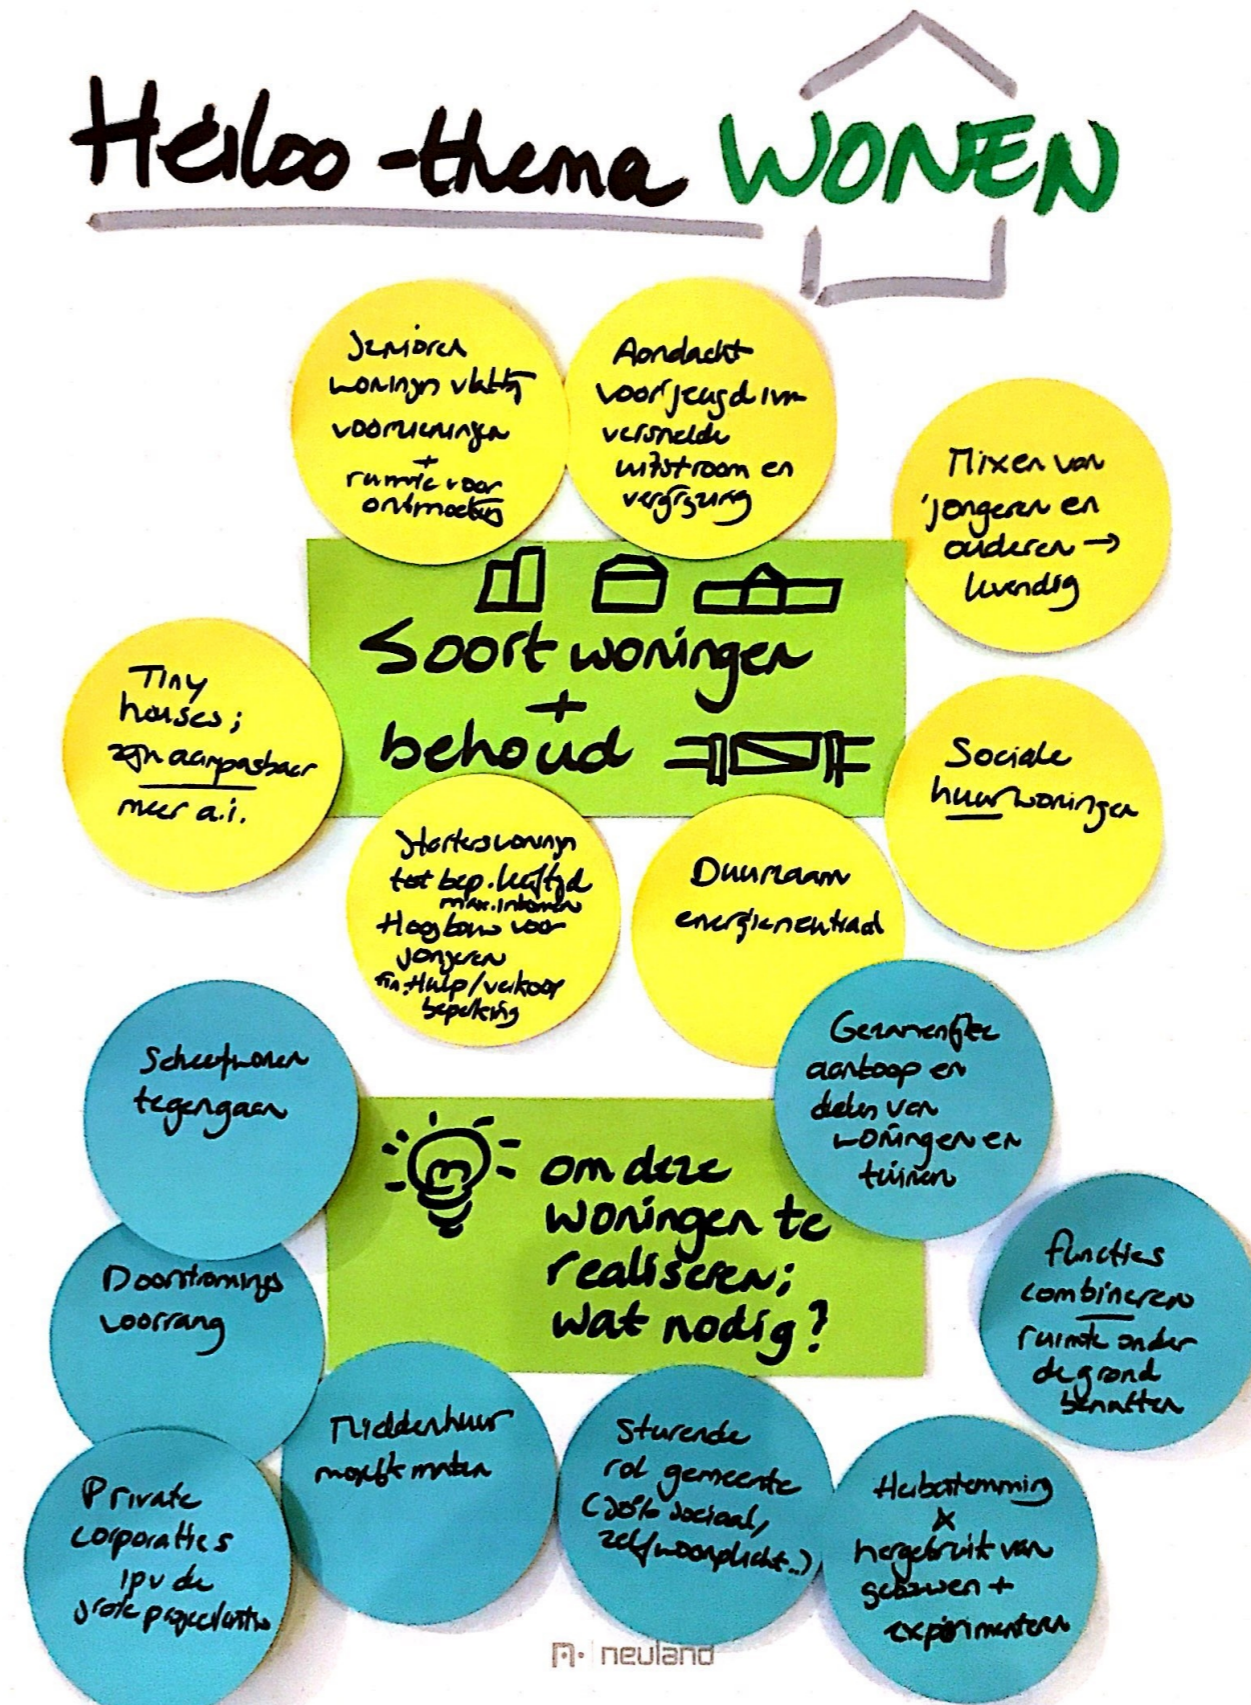 Heiloo - thema WONEN
Senioren
woningen vlakbij
voorzieningen
+
ruimte voor
ontmoeting
Aandacht
voor jeugd ivm
versnelde
uitstroom en
vergrijzing
Mixen van
jongeren en
ouderen →
levendig
Soort woningen
+
behoud
Tiny
houses;
zijn aanpasbaar
meer a.i.
Sociale
huurwoningen
Starterswoningen
tot bep. leeftijd
max. inkomen
Hoogbouw voor
jongeren
Fin. Hulp/verkoop
beperking
Duurzaam
energieneutraal
Scheefwonen
tegengaan
Gezamenlijke
aankoop en
delen van
woningen en
tuinen
om deze
woningen te
realiseren;
wat nodig?
Doorstromings
voorrang
functies
combineren
ruimte onder
de grond
benutten
Middenhuur
mogelijk maken
Sturende
rol gemeente
(30% sociaal,
zelfwoonplicht..)
Herbestemming
&
hergebruik van
gebouwen +
experimenteren
Private
corporaties
ipv de
grote projectontw
neuland